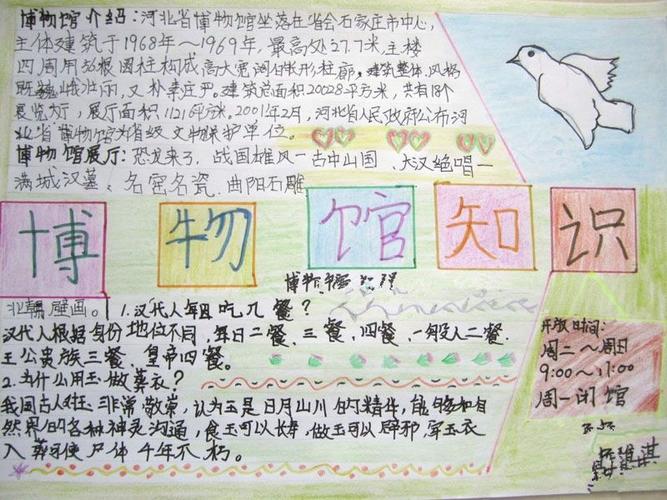 博物馆介绍：河北省博物馆坐落在省会石家庄市中心，
主体建筑于1968年～1969年，最高处27.7米，主楼
四周用 根圆柱构成高大宽阔的 形柱廊，建筑整体风格
既巍峨壮丽，又朴素庄严。建筑总面积20028平方米，共有18个
展览大厅，展厅面积1121平方米。2001年2月，河北省人民政府公布河
北省博物馆为省级文物保护单位。
博物馆展厅：恐龙来了、战国雄风－古中山国、大汉绝唱－
满城汉墓、名窑名瓷、曲阳石雕
博物馆知识
北朝壁画。
1.汉代人每日吃几餐？
汉代人根据身份地位不同，每日二餐、三餐、四餐，一般人二餐.
王公贵族三餐，皇帝四餐。
2.为什么用玉做葬衣？
我国古人对玉非常敬崇，认为玉是日月山川的精华，能够和自
然界的各种神灵沟通，食玉可以长寿，做玉可以辟邪，穿玉衣
入葬可使尸体千年不朽。
开放时间：
周二～周日
9:00～17:00
周一闭馆